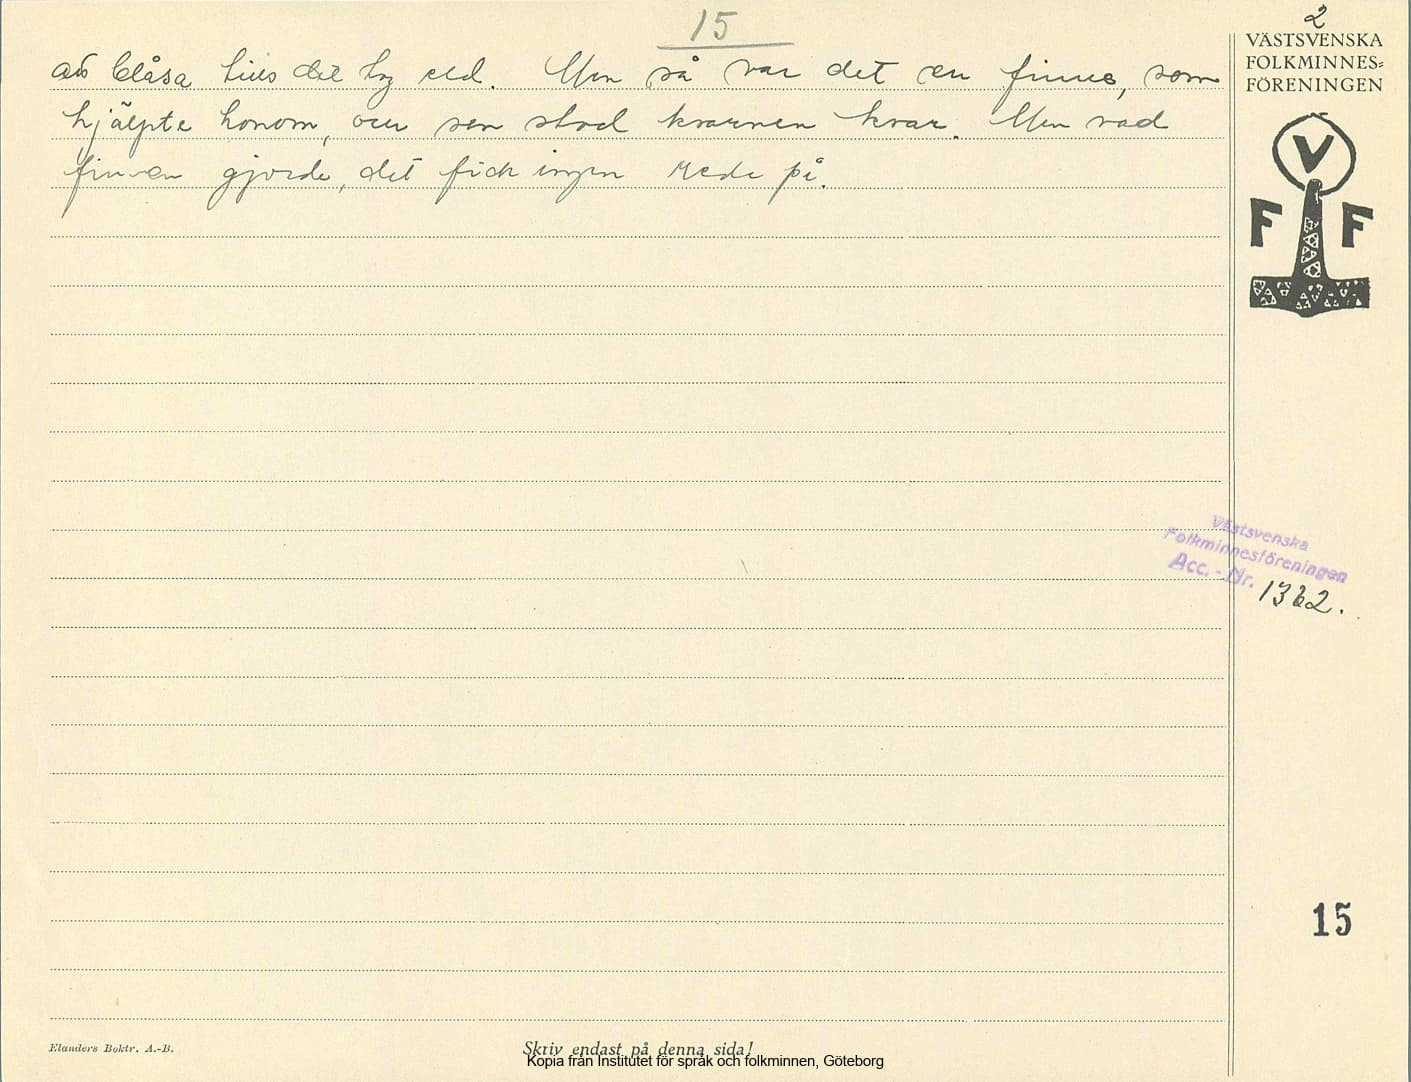 15
2
VÄSTSVENSKA
FOLKMINNES=
FÖRENINGEN
att blåsa tills det tog eld. Men så var det en finne, som
hjälpte honom, och sen stod kvarnen kvar. Men vad
finnen gjorde, det fick ingen reda på.
V
F F
Västsvenska
Folkminnesföreningen
Acc. - Nr. 1362.
15
Elanders Boktr. A.-B.
Skriv endast på denna sida!
Kopia från Institutet för språk och folkminnen, Göteborg